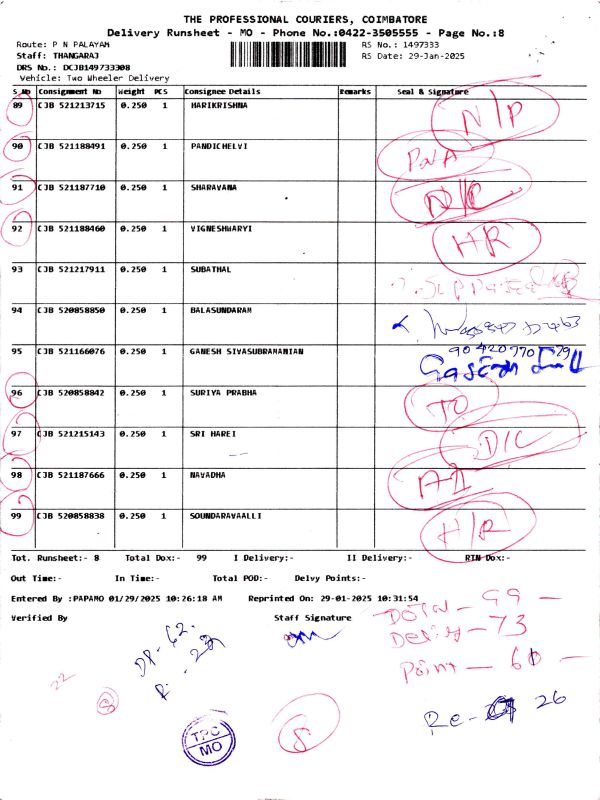 THE PROFESSIONAL COURIERS, COIMBATORE
Delivery Runsheet - MO - Phone No.:0422-3505555 - Page No.:8
Route: P N PALAYAM RS No.: 1497333
Staff: THANGARAJ RS Date: 29-Jan-2025
DRS No.: DCJB149733308
Vehicle: Two Wheeler Delivery
S_No Consignment No Weight PCS Consignee Details Remarks Seal & Signature
89 CJB 521213715 0.250 1 HARIKRISHNA N/P
90 CJB 521188491 0.250 1 PANDICHELVI PNA
91 CJB 521187710 0.250 1 SHARAVANA D/C
92 CJB 521188460 0.250 1 VIGNESHWARYI HR
93 CJB 521217911 0.250 1 SUBATHAL
94 CJB 520858850 0.250 1 BALASUNDARAM
95 CJB 521166076 0.250 1 GANESH SIVASUBRAMANIAN
96 CJB 520858842 0.250 1 SURIYA PRABHA TO
97 CJB 521215143 0.250 1 SRI HAREI D/C
98 CJB 521187666 0.250 1 NAVADHA
99 CJB 520858838 0.250 1 SOUNDARAVAALLI H/R
Tot. Runsheet:- 8 Total Dox:- 99 I Delivery:- II Delivery:- RTN Dox:-
Out Time:- In Time:- Total POD:- Delvy Points:-
Entered By :PAPAMO 01/29/2025 10:26:18 AM Reprinted On: 29-01-2025 10:31:54
Verified By Staff Signature
99 -
73
Point - 61 -
Re- 26
22
8
TPC
MO